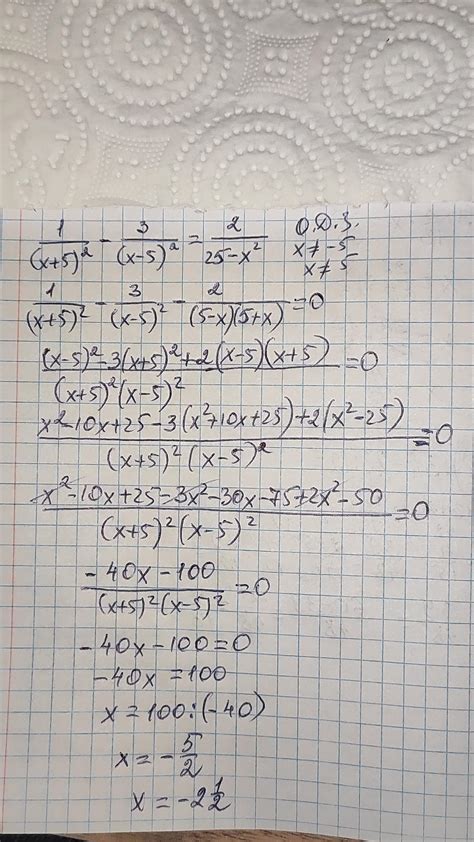 1/(x+5)² - 3/(x-5)² = 2/(25-x²) О.Д.З.
x≠-5
x≠5
1/(x+5)² - 3/(x-5)² - 2/((5-x)(5+x)) = 0
((x-5)² - 3(x+5)² + 2(x-5)(x+5))/((x+5)²(x-5)²) = 0
(x² - 10x + 25 - 3(x² + 10x + 25) + 2(x² - 25))/((x+5)²(x-5)²) = 0
(x² - 10x + 25 - 3x² - 30x - 75 + 2x² - 50)/((x+5)²(x-5)²) = 0
(-40x - 100)/((x+5)²(x-5)²) = 0
-40x - 100 = 0
-40x = 100
x = 100:(-40)
x = -5/2
x = -2 1/2